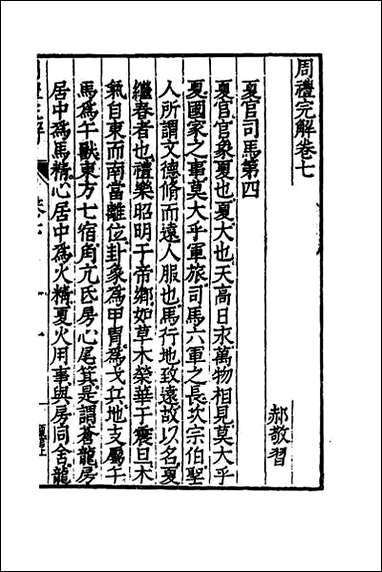 周禮完解卷七
郝敬習
夏官司馬第四
夏官官象夏也夏大也天高日永萬物相見莫大乎
夏國家之事莫大乎軍旅司馬六軍之長次宗伯聖
人所謂文德脩而遠人服也馬行地致遠故以名夏
繼春者也禮樂昭明于帝鄉如草木榮華于震旦木
氣自東而南當離位卦象爲甲胄爲戈兵地支屬午
馬爲午獸東方七宿角亢氐房心尾箕是謂蒼龍房
居中爲馬精心居中爲火精夏火用事與房同舍龍